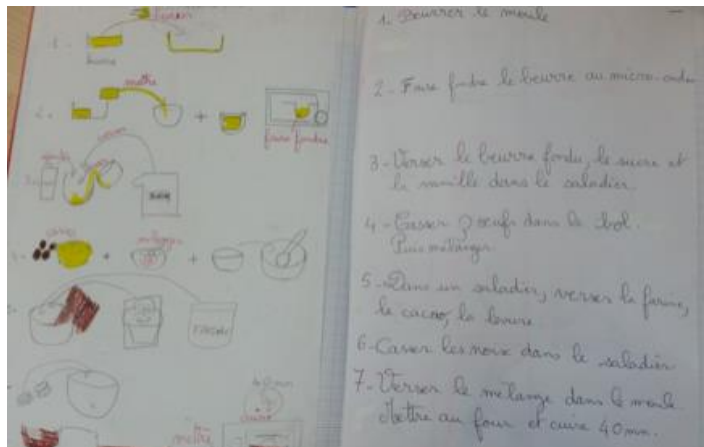 1-
beurre
2-
mettre
+
faire fondre
verser
casser
mélanger
+
+
FARINE
40 mn
mettre
1. Beurrer le moule
2- Faire fondre le beurre au micro-ondes
3- Verser le beurre fondu, le sucre et
la vanille dans le saladier
4- Casser 3 œufs dans le bol.
Puis mélanger
5- Dans un saladier, verser la farine,
le cacao, la levure
6- Casser les noix dans le saladier
7- Verser le mélange dans le moule
Mettre au four et cuire 40 mn.